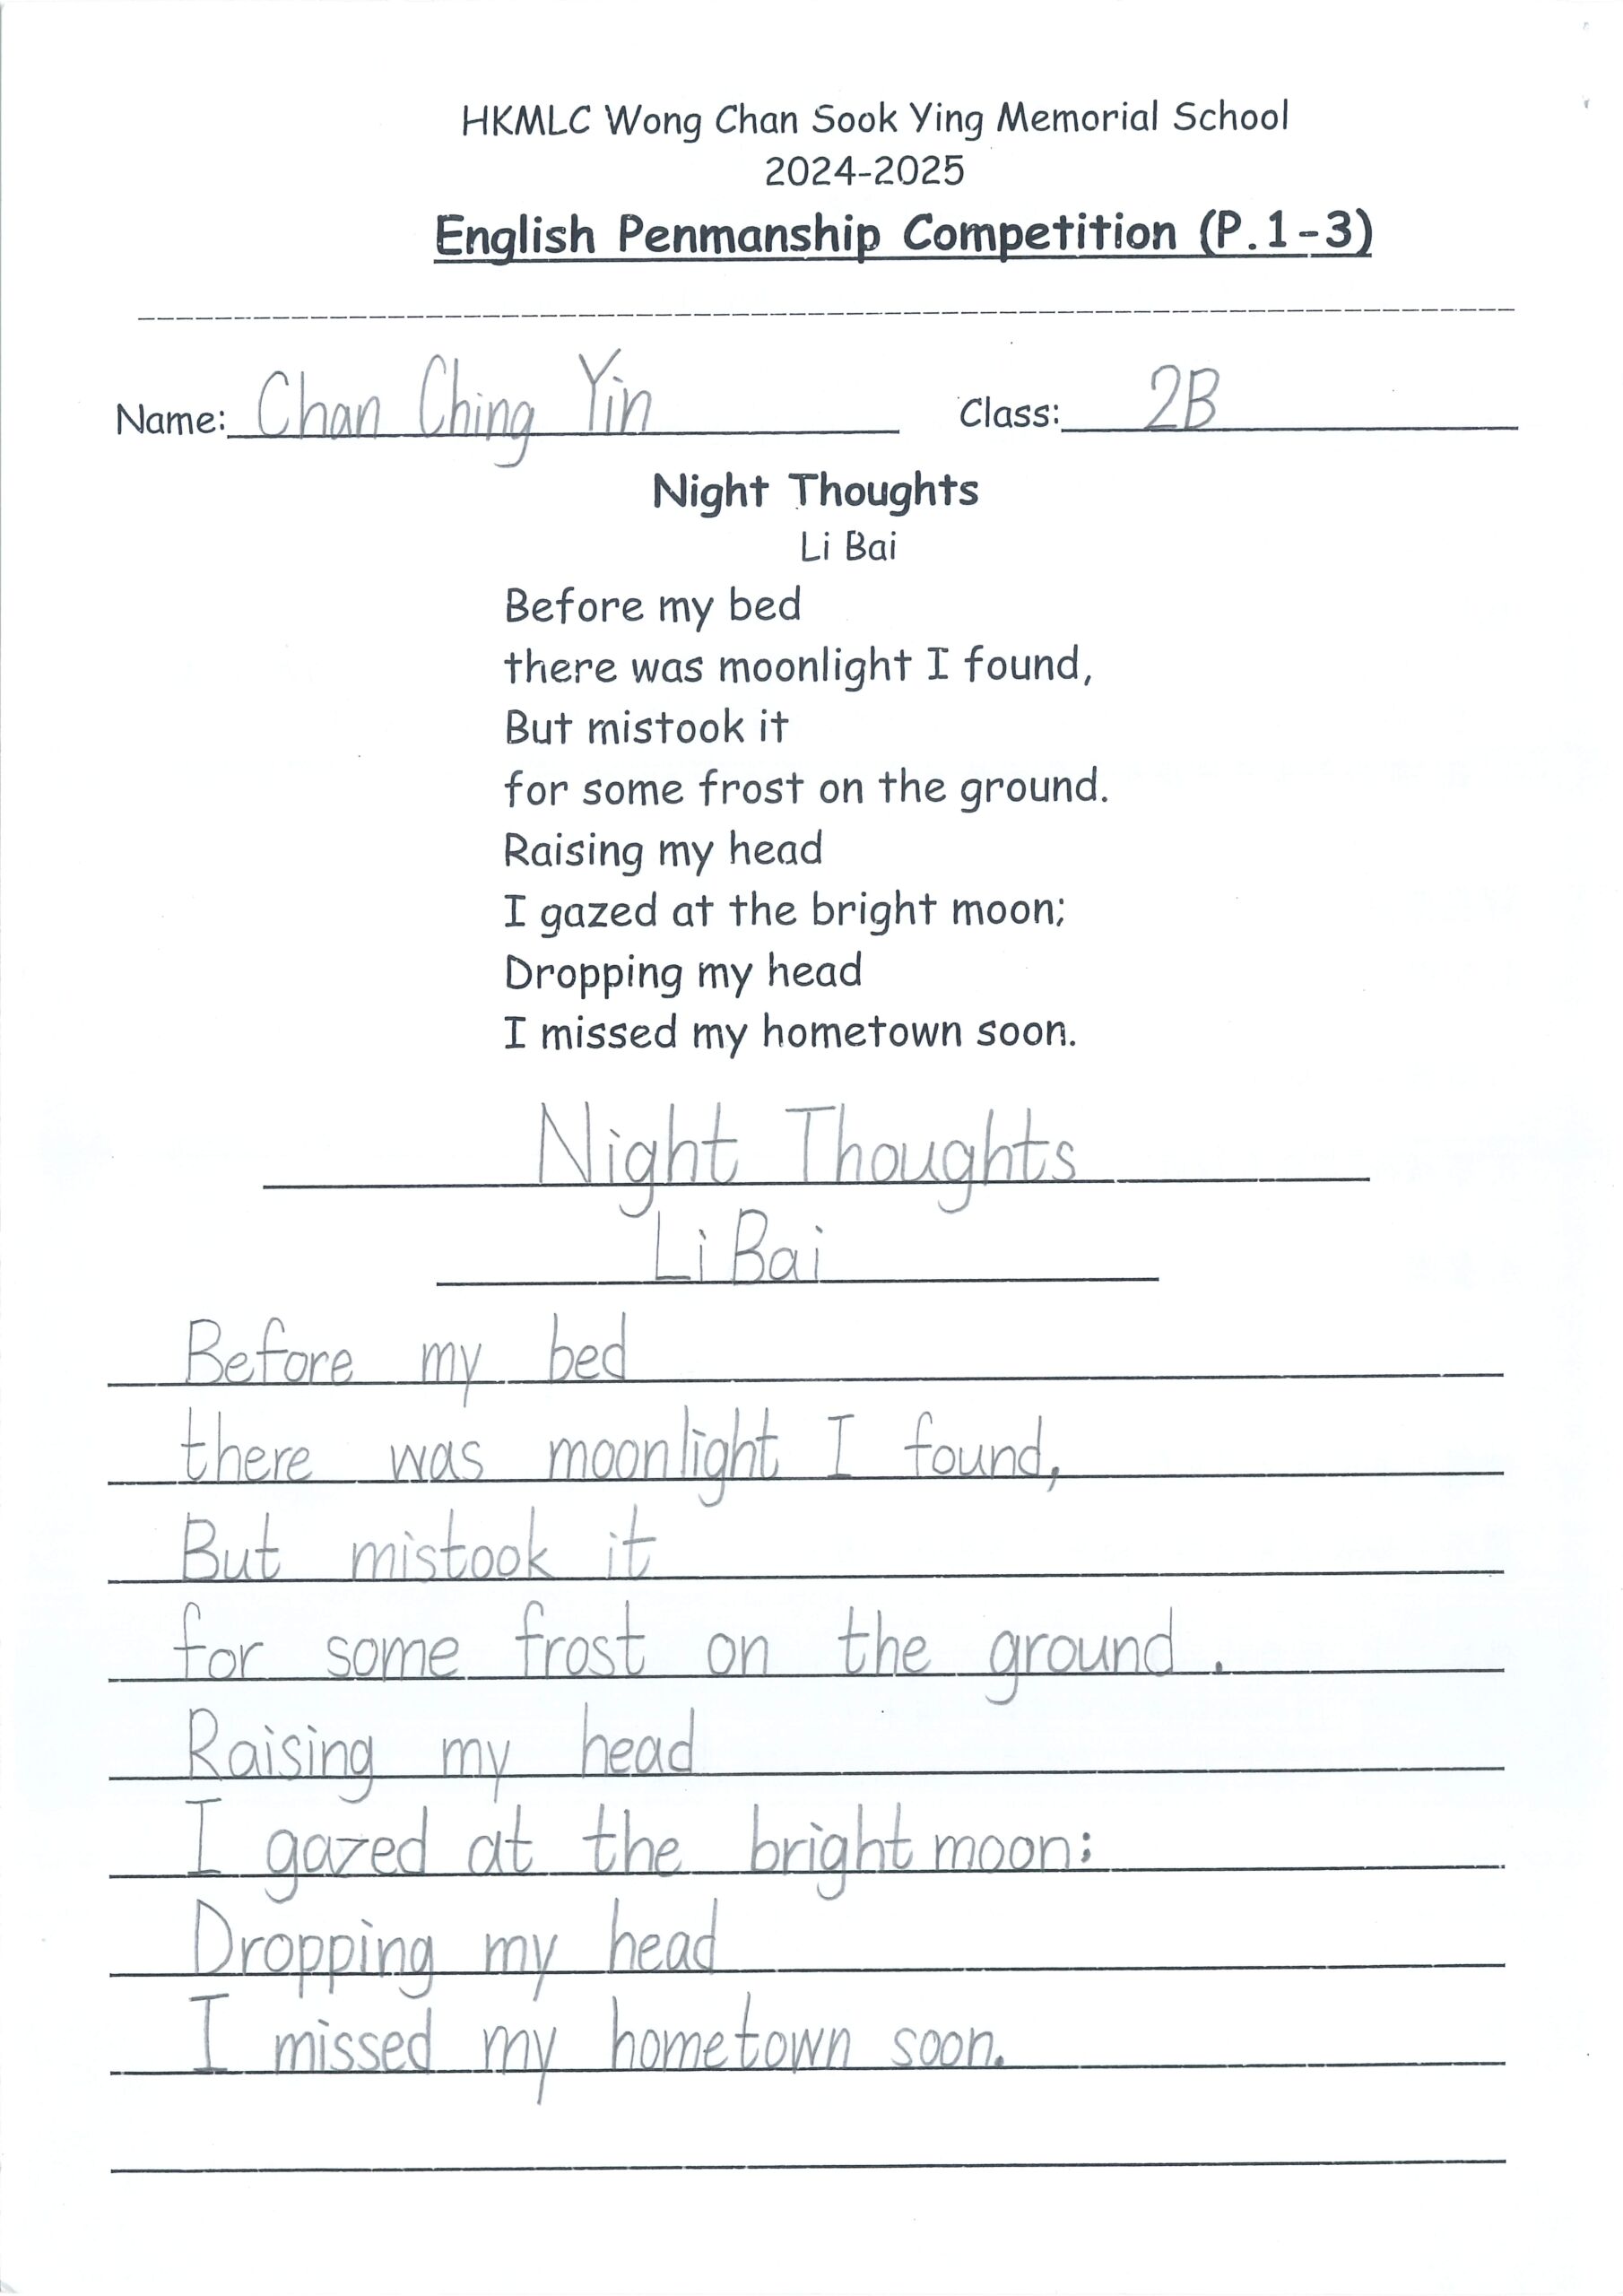 HKMLC Wong Chan Sook Ying Memorial School
2024-2025
English Penmanship Competition (P.1-3)
Name: Chan Ching Yin Class: 2B
Night Thoughts
Li Bai
Before my bed
there was moonlight I found,
But mistook it
for some frost on the ground.
Raising my head
I gazed at the bright moon;
Dropping my head
I missed my hometown soon.
Night Thoughts
Li Bai
Before my bed
there was moonlight I found,
But mistook it
for some frost on the ground.
Raising my head
I gazed at the bright moon;
Dropping my head
I missed my hometown soon.